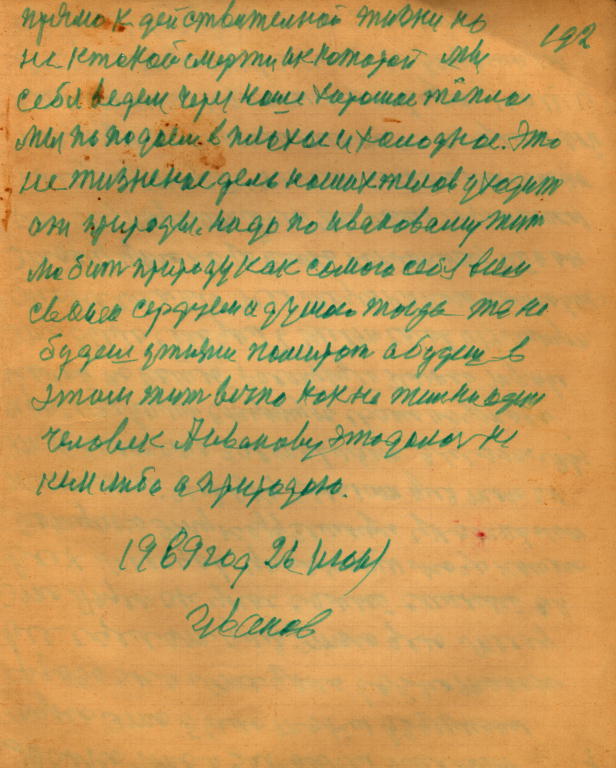 192
прямо к действителной жизни но
не к такой смерти к которой мы
себя ведем через наше хорошае тёплае
мы поподаем в плохое и холодное. Это
не жизненое дело наших телов уходит
от природы. надо по ивановому жит
любит природу как самого себя всем
своим сердцем и душою тогда то не
будем у жизни помират а будем в
этом жит вечно как не жил не один
человек А Иванову это дано не
кем либо а природою.
1969 год 26 июн
Иванов